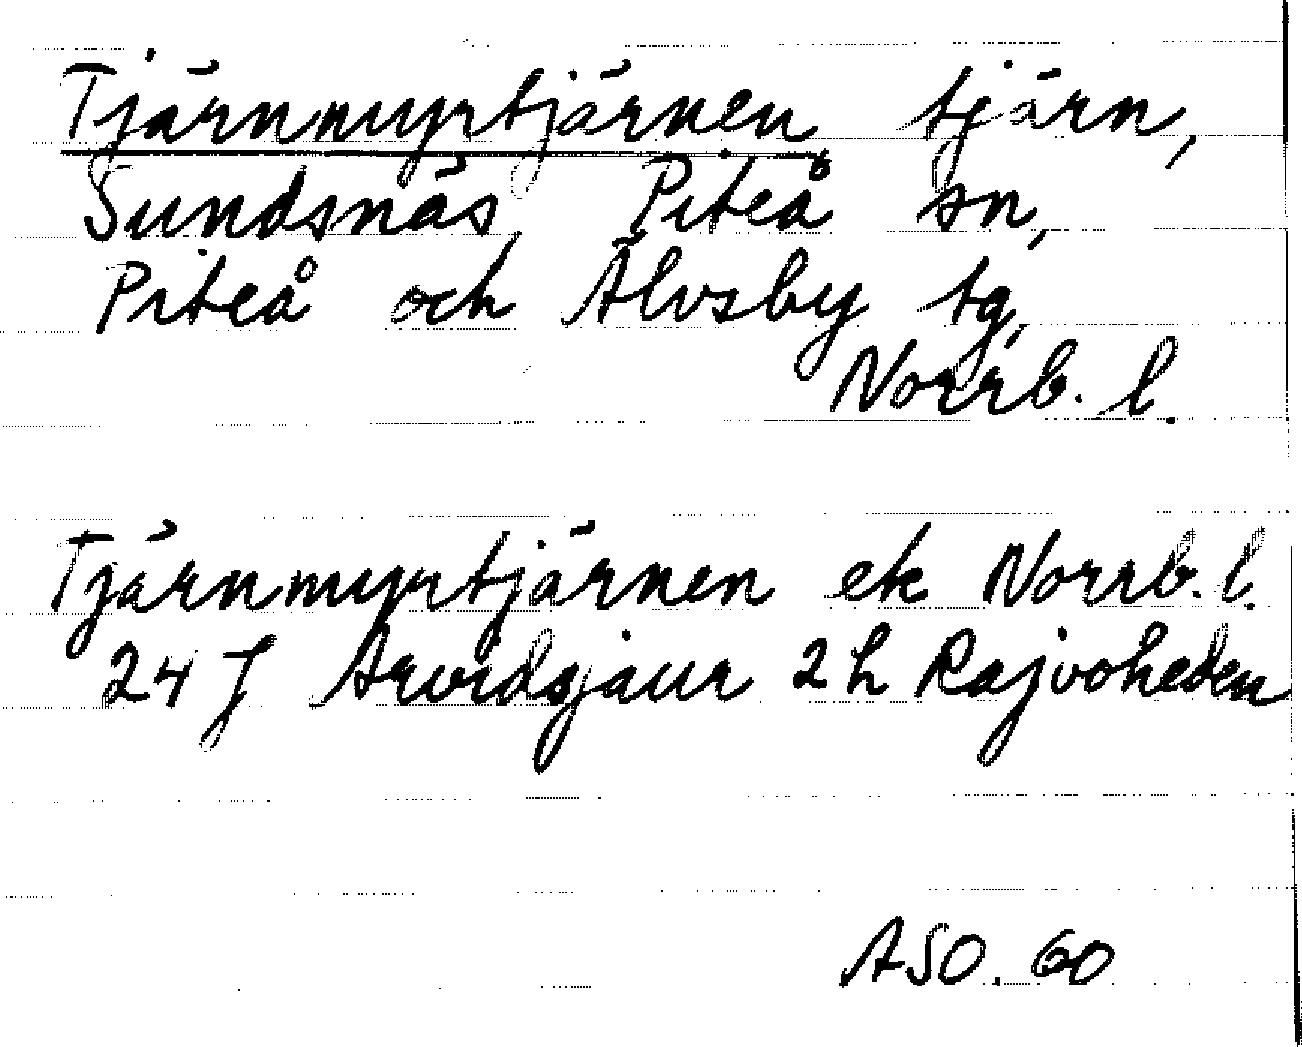 Tjärnmyrtjärnen tjärn,
Sundsnäs Piteå sn,
Piteå och Älvsby tg,
Norrb. l.
Tjärnmyrtjärnen ek Norrb. l.
24 J Arvidsjaur 2h Rajvoheden
ASO. 60